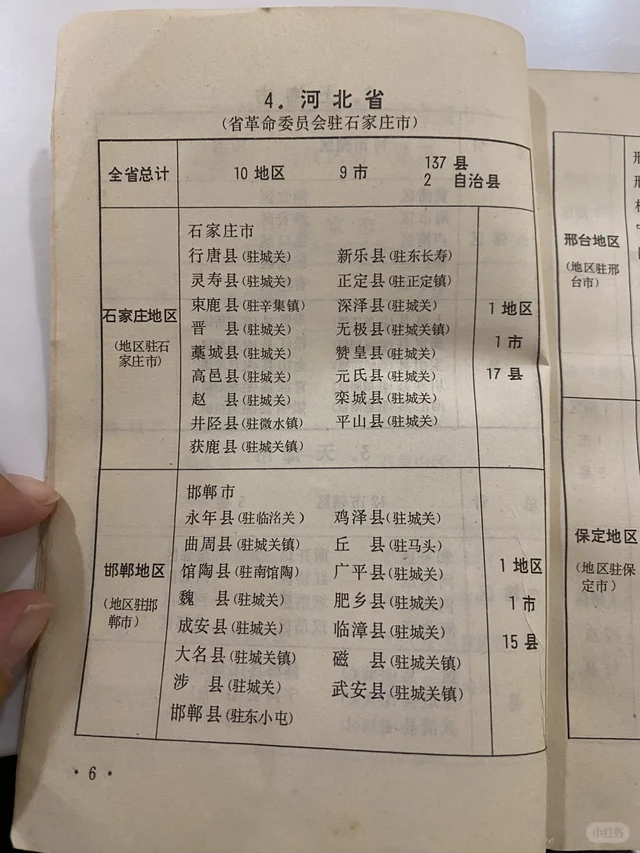 4．河北省
(省革命委员会驻石家庄市)
全省总计 10 地区 9 市 137 县
2 自治县
石家庄地区
(地区驻石
家庄市)
石家庄市
行唐县(驻城关) 新乐县(驻东长寿)
灵寿县(驻城关) 正定县(驻正定镇)
束鹿县(驻辛集镇) 深泽县(驻城关)
晋 县(驻城关) 无极县(驻城关镇)
藁城县(驻城关) 赞皇县(驻城关)
高邑县(驻城关) 元氏县(驻城关)
赵 县(驻城关) 栾城县(驻城关)
井陉县(驻微水镇) 平山县(驻城关)
获鹿县(驻城关镇)
1 地区
1 市
17 县
邯郸地区
(地区驻邯
郸市)
邯郸市
永年县(驻临洺关) 鸡泽县(驻城关)
曲周县(驻城关镇) 丘 县(驻马头)
馆陶县(驻南馆陶) 广平县(驻城关)
魏 县(驻城关) 肥乡县(驻城关)
成安县(驻城关) 临漳县(驻城关)
大名县(驻城关镇) 磁 县(驻城关镇)
涉 县(驻城关) 武安县(驻城关镇)
邯郸县(驻东小屯)
1 地区
1 市
15 县
· 6 ·
邢台地区
(地区驻邢
台市)
保定地区
(地区驻保
定市)
小红书